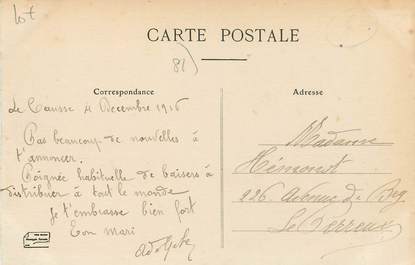 lot
CARTE POSTALE
81)
Correspondance
Le Causse 4 Decembre 1916
Pas beaucoup de nouvelles à
t'annoncer.
Poignée habituelle de baisers à
distribuer à tout le monde
Je t'embrasse bien fort
Ton mari
Adolphe
Adresse
Madame
226 Avenue de
Le Perreux